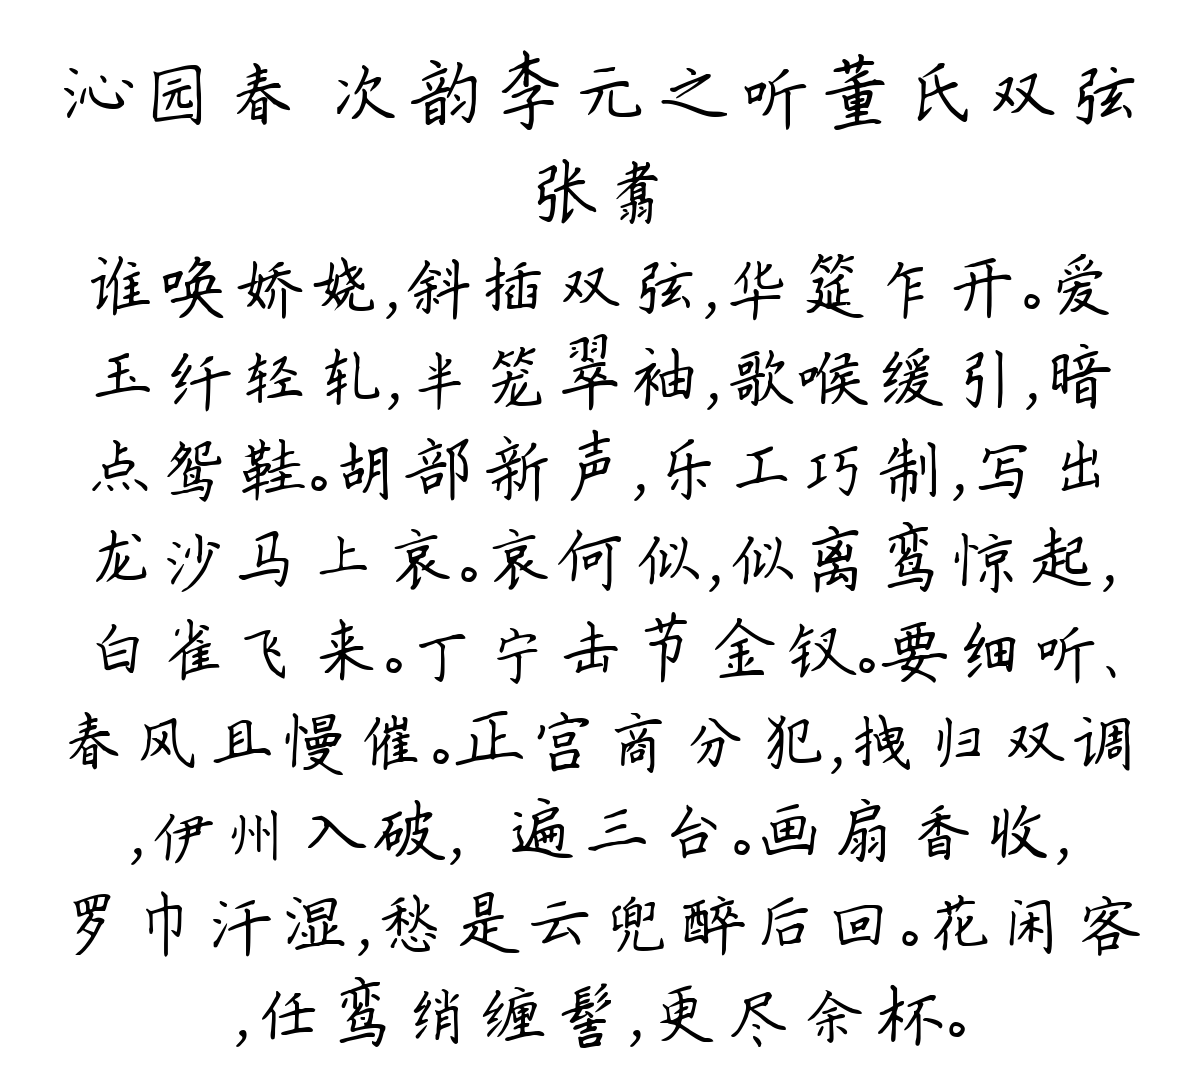 沁园春 次韵李元之听董氏双弦
张翥
谁唤娇娆,斜插双弦,华筵乍开。爱
玉纤轻轧,半笼翠袖,歌喉缓引,暗
点鸳鞋。胡部新声,乐工巧制,写出
龙沙马上哀。哀何似,似离鸾惊起,
白雀飞来。丁宁击节金钗。要细听、
春风且慢催。正宫商分犯,拽归双调
,伊州入破, 遍三台。画扇香收,
罗巾汗湿,愁是云兜醉后回。花闲客
,任鸾绡缠髻,更尽余杯。